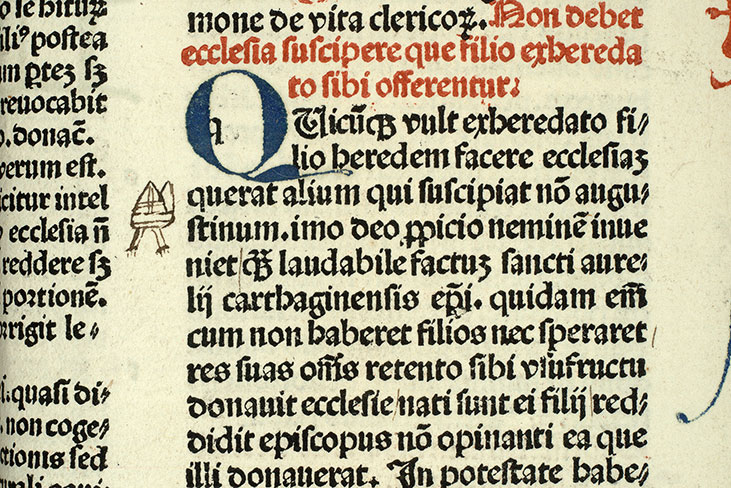 lo ſe hituꝝ
ili⁹ poſtea
um ꝑteꝫ ſꝫ
reuocabit
o. donac̄.
verum eſt.
icitur intel
ecclesia n̄
reddere ſꝫ
portionē.
orrigit le⸗
i. quaſi di⸗
. non coge⸗
ctionis ſed
mone de vita clericoꝝ. Non debet
eccleſia ſuſcipere que filio exhereda
to ſibi offerentur:
q
QUicūqꝫ vult exheredato fi⸗
lio heredem facere eccleſiaꝫ
querat alium qui ſuſcipiat nō augu⸗
ſtinum. imo deo ꝓpicio neminē inue
niet qꝫ laudabile factuꝫ sancti aure⸗
lij carthaginenſis ep̄i. quidam em̄
cum non haberet filios nec ſperaret
res ſuas om̄s retento ſibi vſufructu
donauit eccleſie nati ſunt ei filij red⸗
didit epiſcopus nō opinanti ea que
illi donauerat. In poteſtate habe⸗